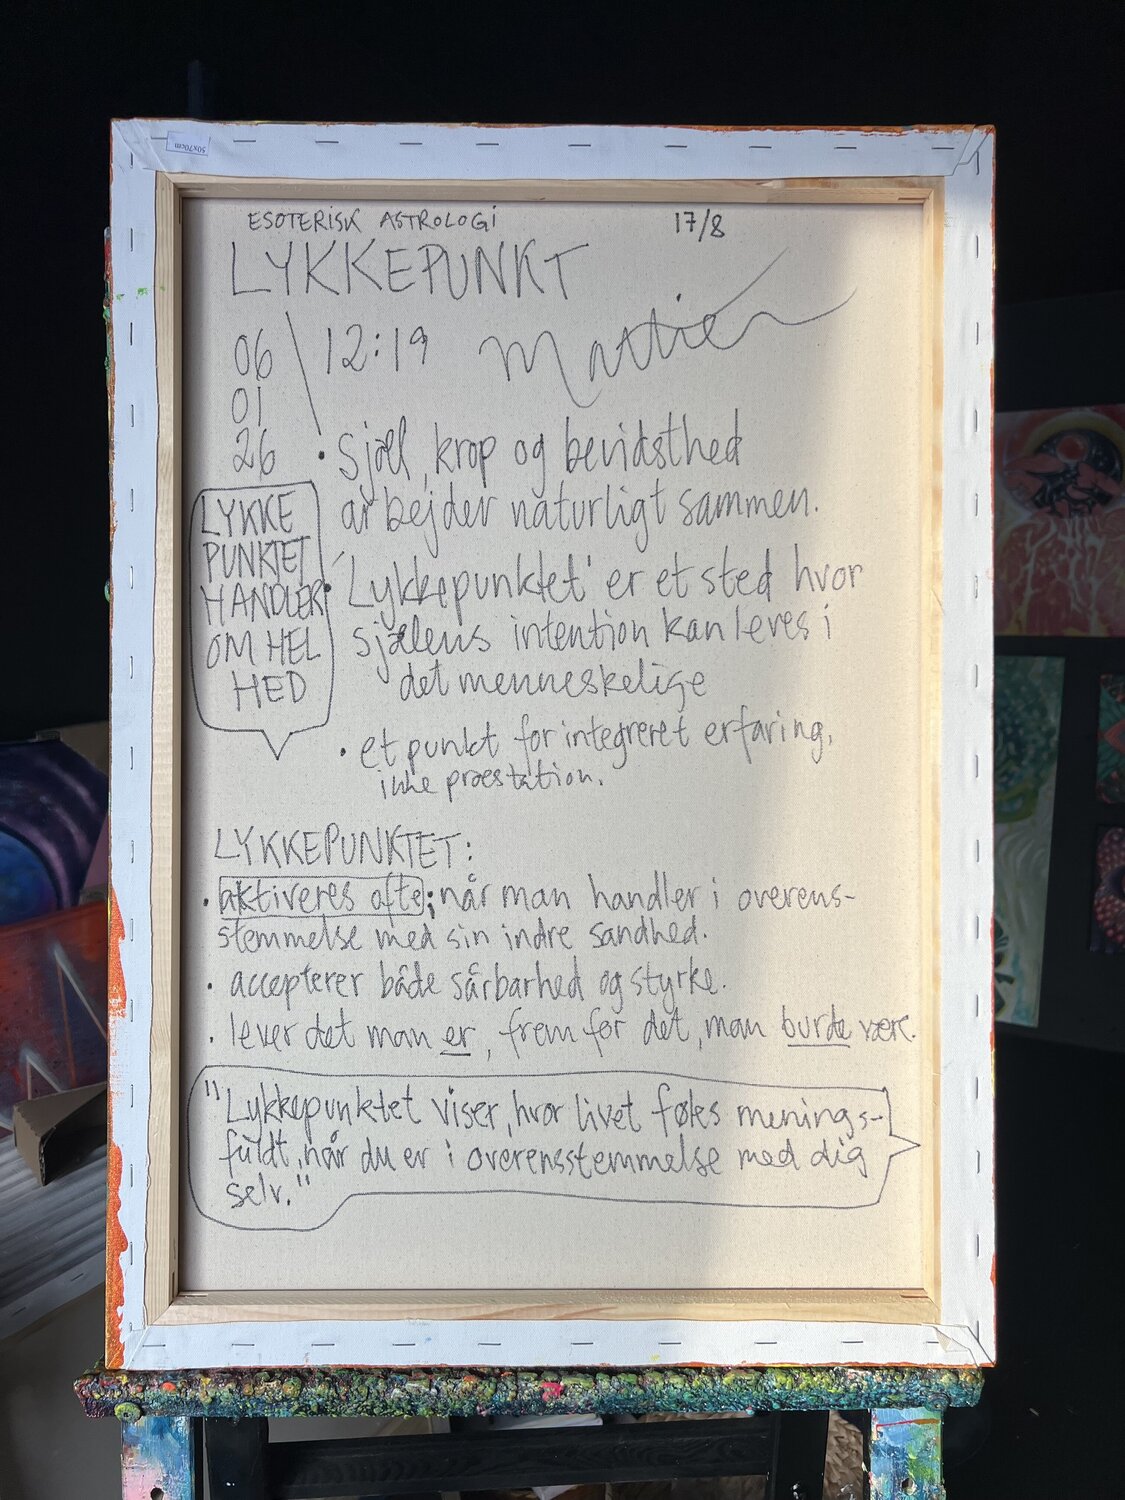 50x70cm
ESOTERISK ASTROLOGI
17/8
LYKKEPUNKT
06
01
26
12:19
• sjæl, krop og bevidsthed
arbejder naturligt sammen.
LYKKE
PUNKTET
HANDLER
OM HEL
HED
• 'Lykkepunktet' er et sted hvor
sjælens intention kan leves i
det menneskelige
• et punkt for integreret erfaring,
ikke præstation.
LYKKEPUNKTET:
• aktiveres ofte; når man handler i overens-
stemmelse med sin indre sandhed.
• accepterer både sårbarhed og styrke.
• lever det man er, frem for det, man burde være.
"Lykkepunktet viser, hvor livet føles menings-
fuldt, når du er i overensstemmelse med dig
selv."